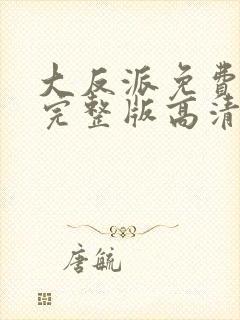 大反派免费
完整版高清
唐毓